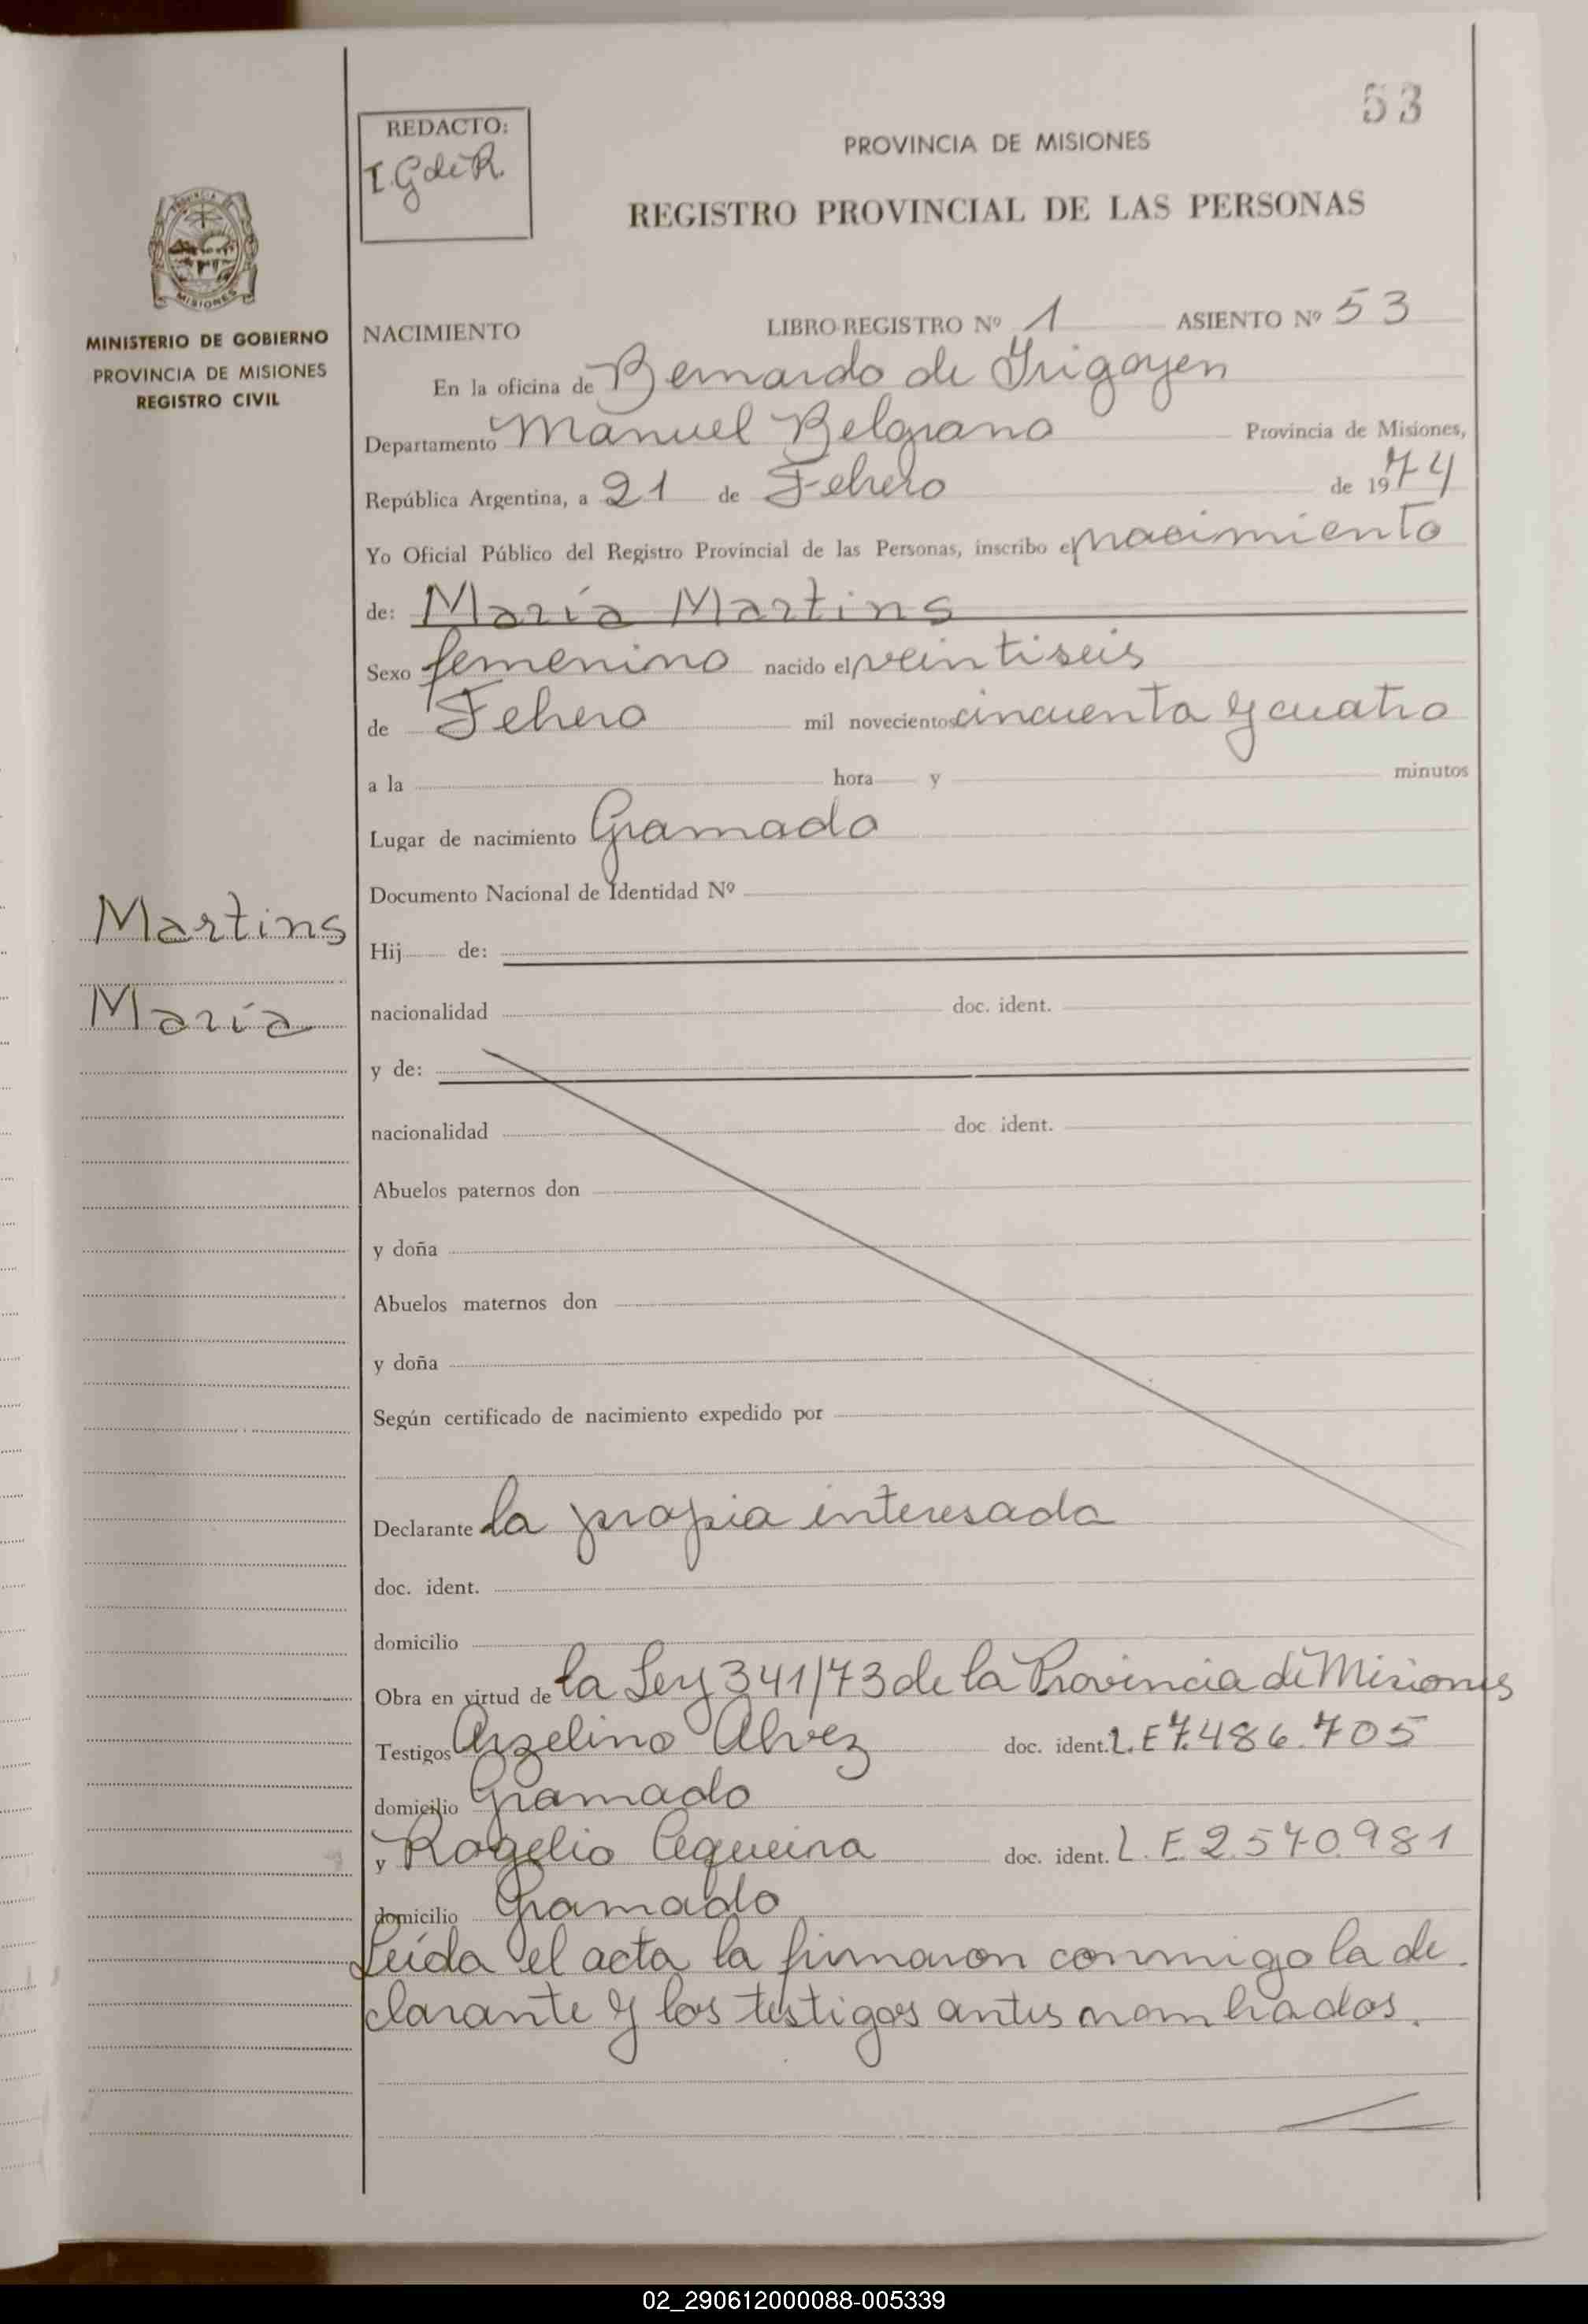 53
REDACTO:
I. G de R.
PROVINCIA DE MISIONES
REGISTRO PROVINCIAL DE LAS PERSONAS
PROVINCIA
MISIONES
MINISTERIO DE GOBIERNO
PROVINCIA DE MISIONES
REGISTRO CIVIL
NACIMIENTO LIBRO REGISTRO Nº 1 ASIENTO Nº 53
En la oficina de Bernardo de Irigoyen
Departamento Manuel Belgrano Provincia de Misiones,
República Argentina, a 21 de Febrero de 1974
Yo Oficial Público del Registro Provincial de las Personas, inscribo el nacimiento
de: María Martins
Sexo femenino nacido el veintiseis
de Febrero mil novecientos cincuenta y cuatro
a la hora y minutos
Lugar de nacimiento Gramado
Documento Nacional de Identidad Nº
Martins
María
Hij de:
nacionalidad doc. ident.
y de:
nacionalidad doc ident.
Abuelos paternos don
y doña
Abuelos maternos don
y doña
Según certificado de nacimiento expedido por
Declarante la propia interesada
doc. ident.
domicilio
Obra en virtud de la Ley 341/73 de la Provincia de Misiones
Testigos Arzelino Alvez doc. ident. L.E 7.486.705
domicilio Gramado
y Rogelio Cequeira doc. ident. L.E. 2.570.981
domicilio Gramado
Leída el acta la firmaron conmigo la de
clarante y los testigos antes nombrados.
02_290612000088-005339